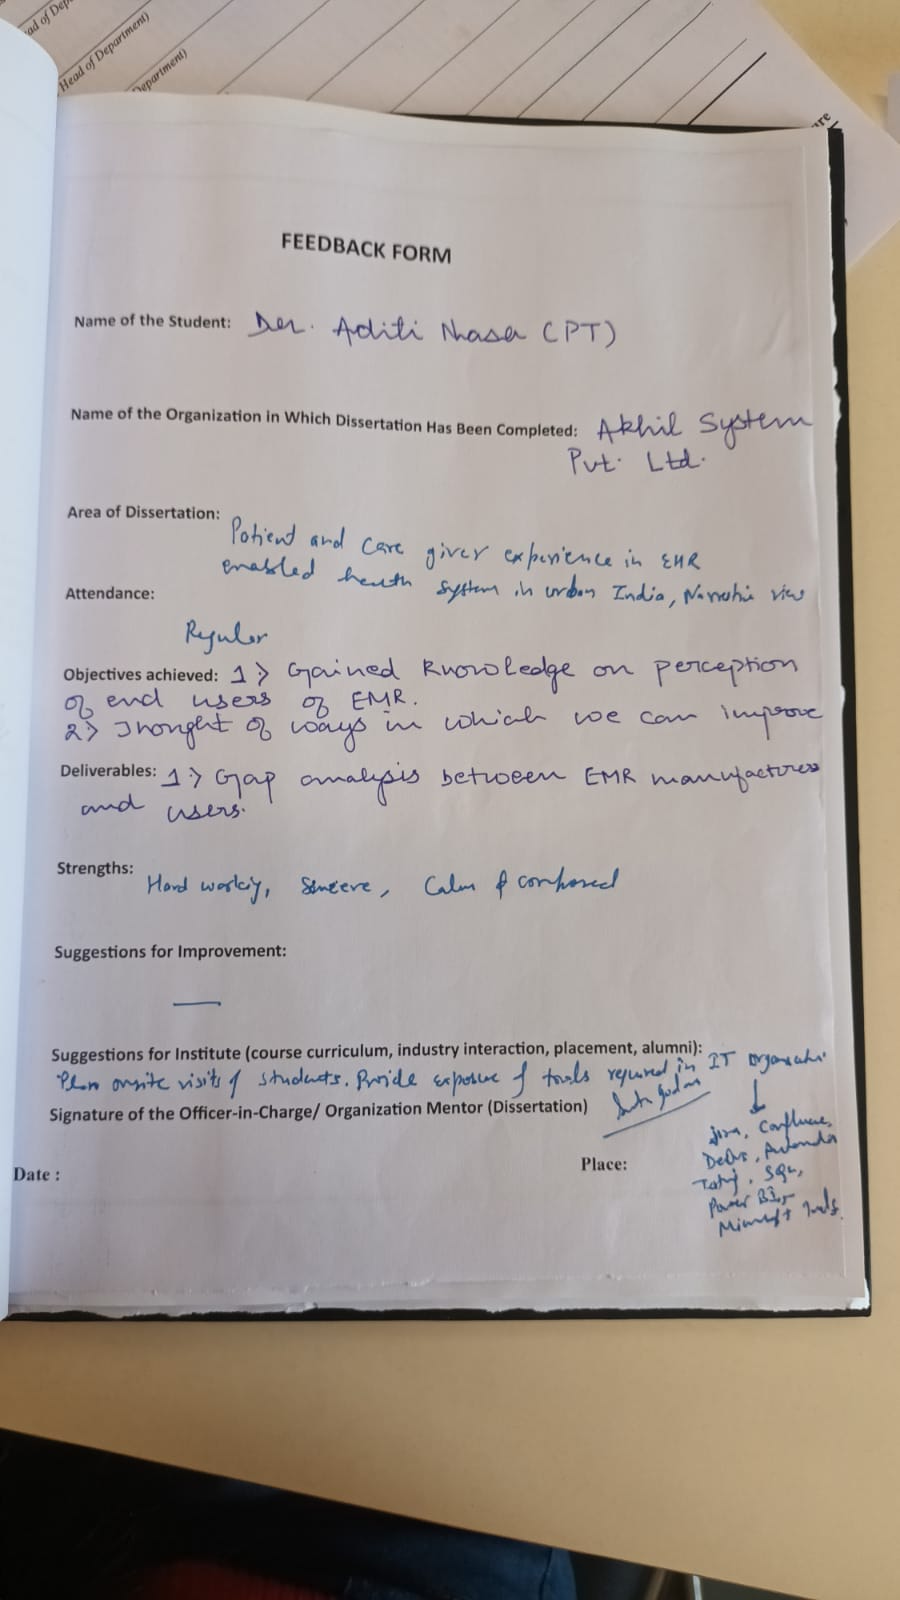 ad of Dep
Head of Department)
Department)
FEEDBACK FORM
Name of the Student: Der. Aditi Nhasa (PT)
Name of the Organization in Which Dissertation Has Been Completed: Akhil System
Pvt. Ltd.
Area of Dissertation: Patient and care giver experience in EMR
enabled health system in urban India, Narrative view
Attendance:
Regular
Objectives achieved: 1> Gained knowledge on perception
of end users of EMR.
2> Thought of ways in which we can improve
Deliverables: 1> Gap analysis between EMR manufacturers
and users.
Strengths: Hard working, Sincere, Calm & composed
Suggestions for Improvement:
—
Suggestions for Institute (course curriculum, industry interaction, placement, alumni):
Plan onsite visits of students. Provide exposure of tools required in IT organisation
Signature of the Officer-in-Charge/ Organization Mentor (Dissertation)
Jira, Confluence,
Place:
Date :
Power BI,
Microsoft Tools.